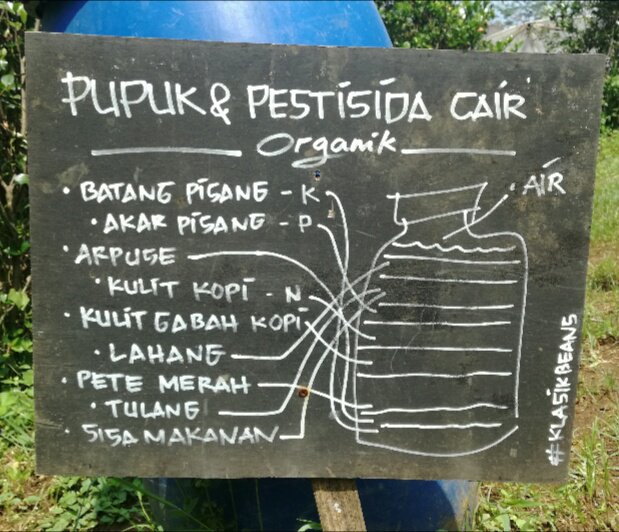 PUPUK & PESTISIDA CAIR
Organik
• BATANG PISANG - K
• AKAR PISANG - P
• ARPUSE
• KULIT KOPI - N
• KULIT GABAH KOPI
• LAHANG
• PETE MERAH
• TULANG
• SISA MAKANAN
• AIR
#KLASIKBEANS